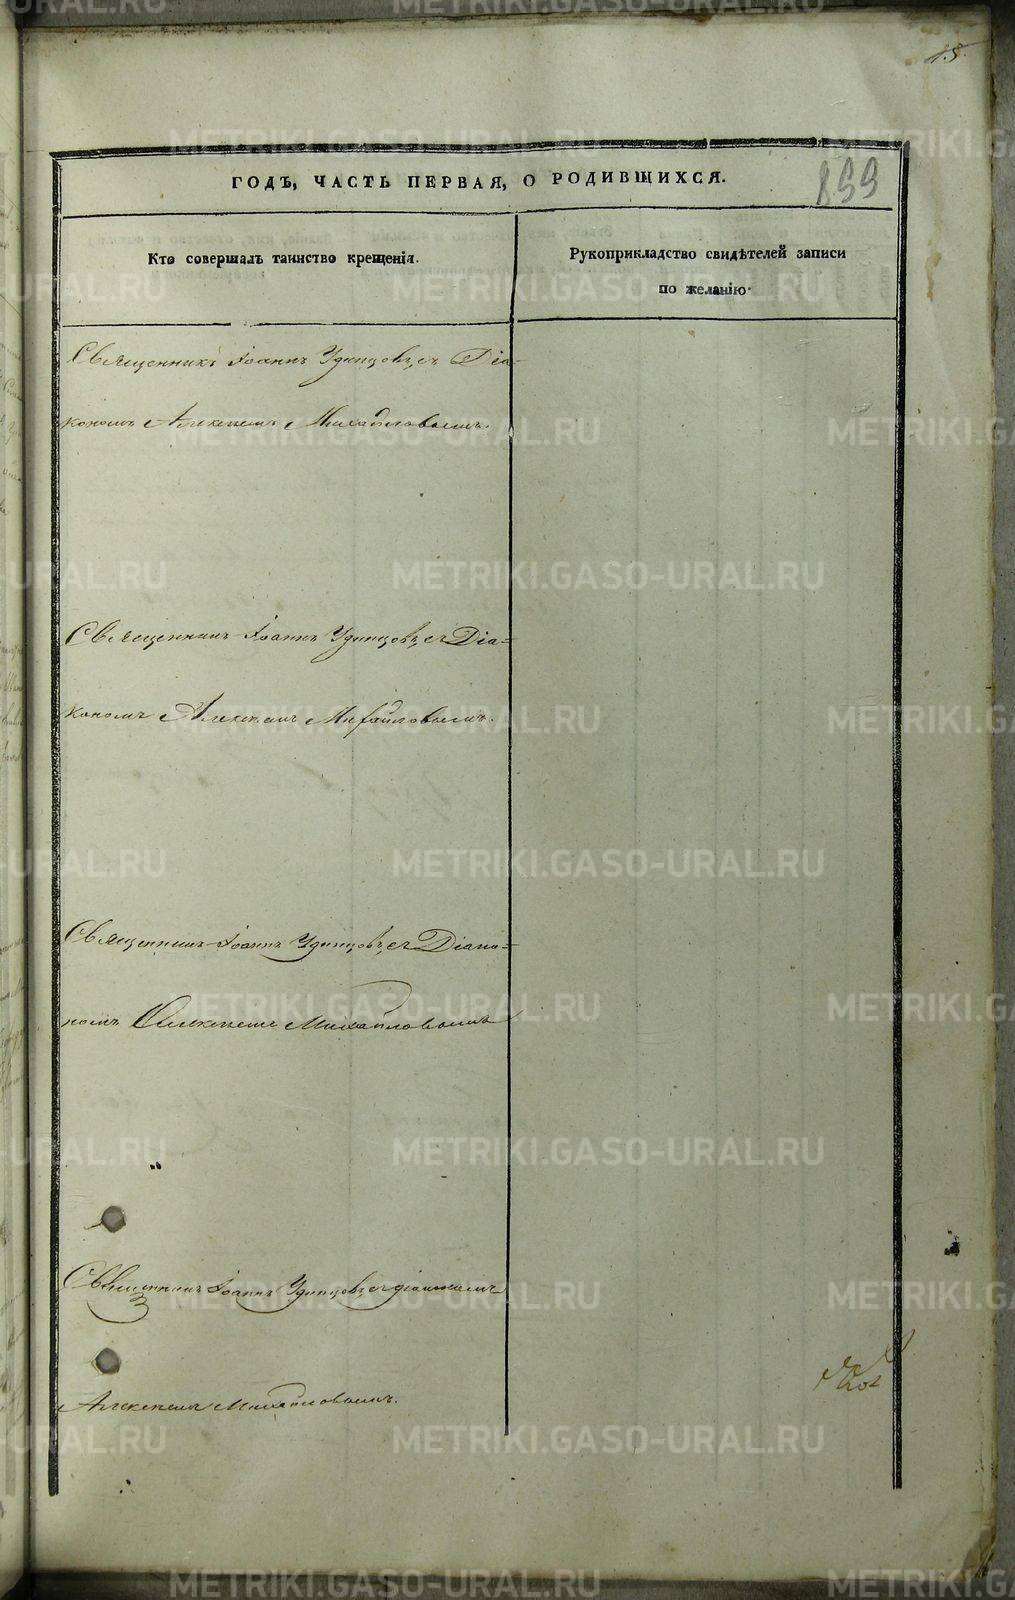 15.
ГОДЪ, ЧАСТЬ ПЕРВАЯ, О РОДИВШИХСЯ.
899
Кто совершалъ таинство крещенія.
Рукоприкладство свидѣтелей записи
по желанію.
Священникъ Іоаннъ Удинцовъ, съ Діа-
кономъ Алексѣемъ Михайловымъ.
Священникъ Іоаннъ Удинцовъ, съ Діа=
кономъ Алексѣемъ Михайловымъ.
Священникъ Іоаннъ Удинцовъ, съ Діако=
номъ Алексѣемъ Михайловымъ
Священникъ Іоаннъ Удинцовъ, съ діакономъ
Алексѣемъ Михайловымъ.
METRIKI.GASO-URAL.RU